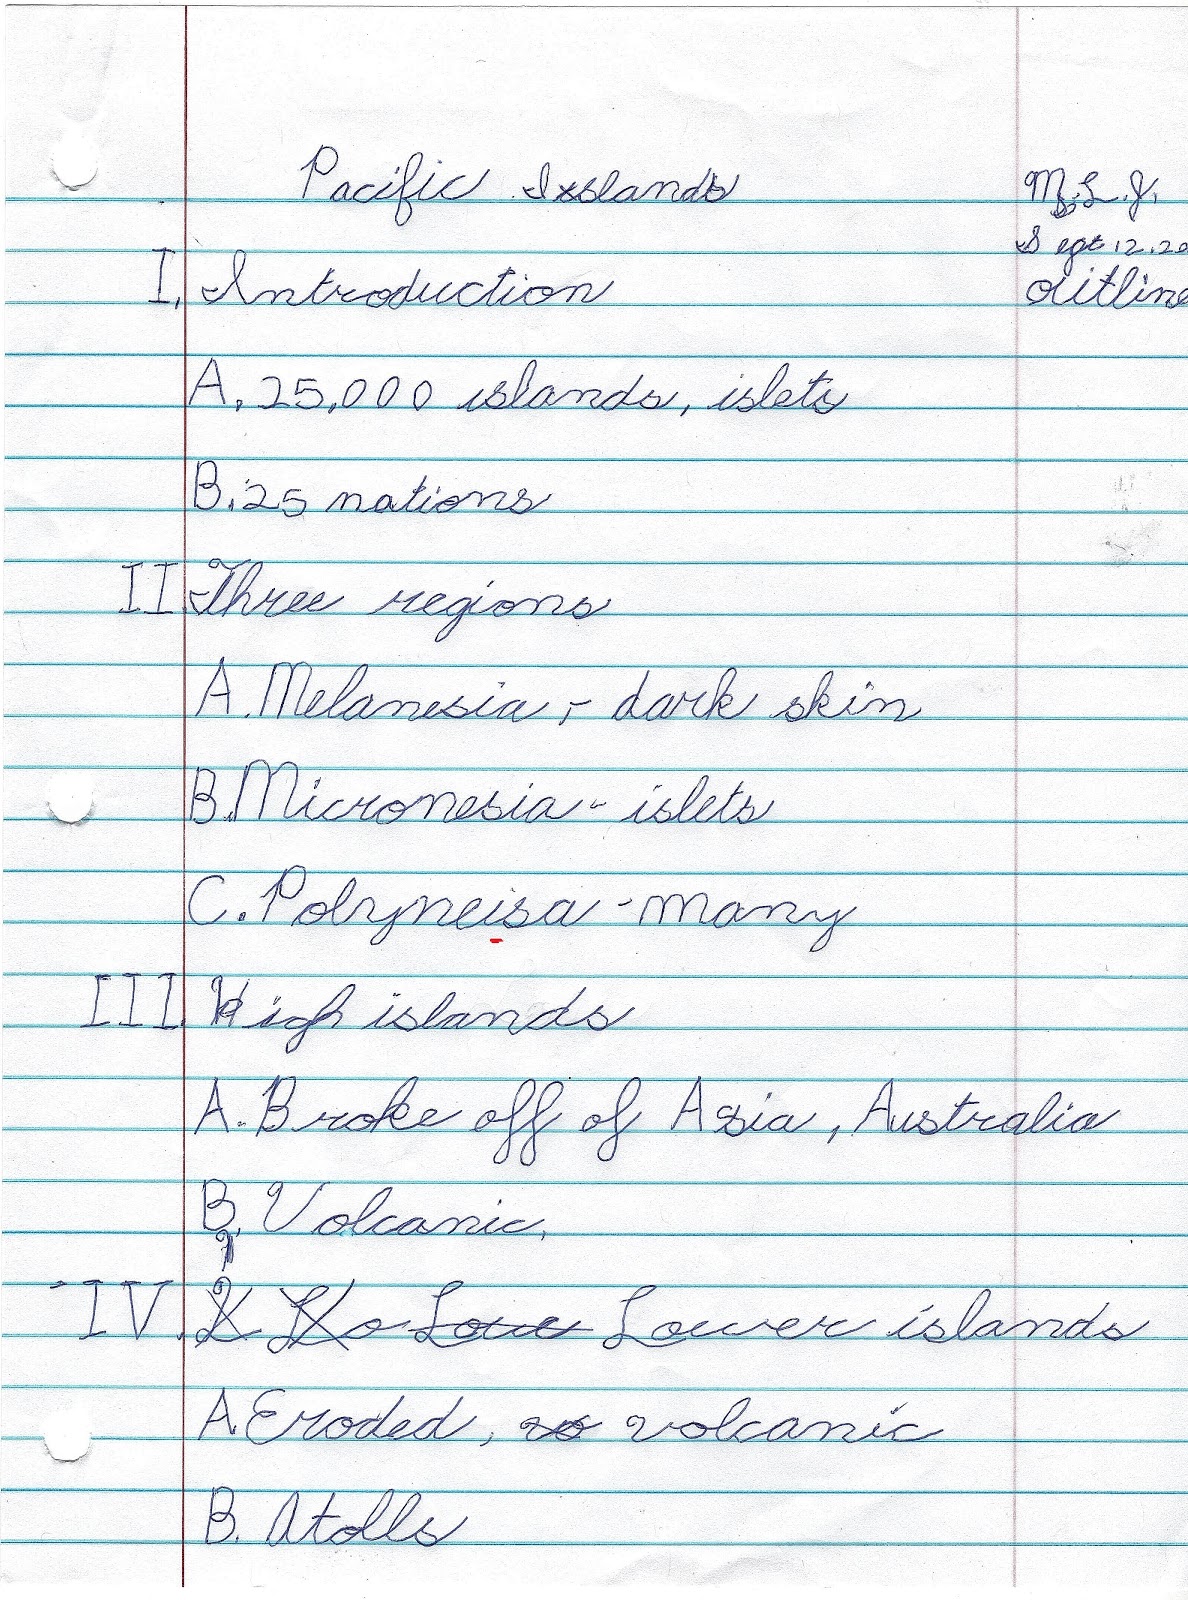 Pacific Islands
M.L.J.
Sept 12.20
outline
I. Introduction
A. 25,000 islands, islets
B. 25 nations
II Three regions
A. Melanesia, - dark skin
B. Micronesia - islets
C. Polyneisa - many
III. High islands
A. Broke off of Asia, Australia
B. Volcanic,
IV. Lower islands
A. Eroded, volcanic
B. Atolls